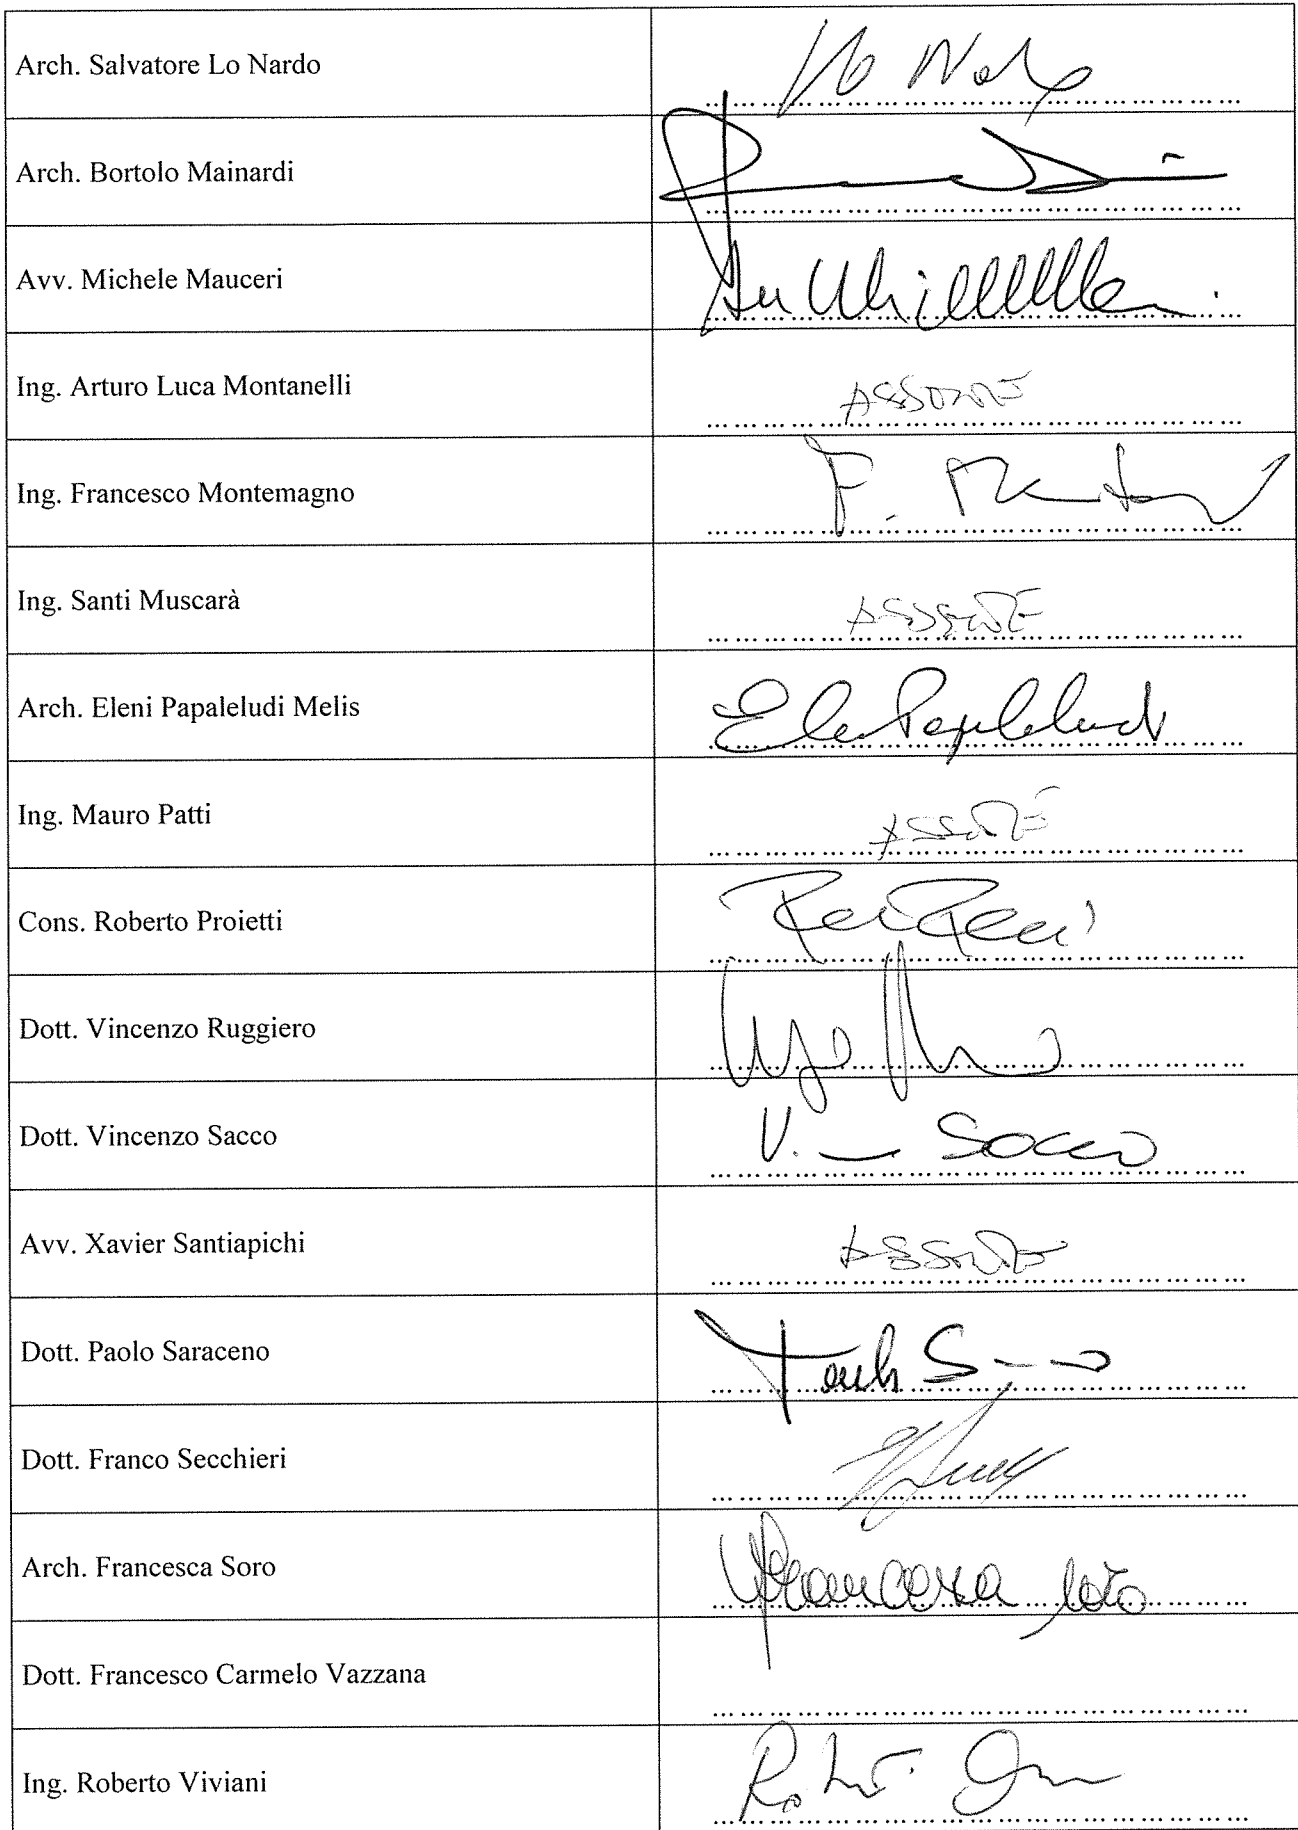 Arch. Salvatore Lo Nardo
Arch. Bortolo Mainardi
Avv. Michele Mauceri
Ing. Arturo Luca Montanelli ASSENTE
Ing. Francesco Montemagno
Ing. Santi Muscarà ASSENTE
Arch. Eleni Papaleludi Melis
Ing. Mauro Patti ASSENTE
Cons. Roberto Proietti
Dott. Vincenzo Ruggiero
Dott. Vincenzo Sacco V. Sacco
Avv. Xavier Santiapichi ASSENTE
Dott. Paolo Saraceno
Dott. Franco Secchieri
Arch. Francesca Soro Francesca Soro
Dott. Francesco Carmelo Vazzana
Ing. Roberto Viviani